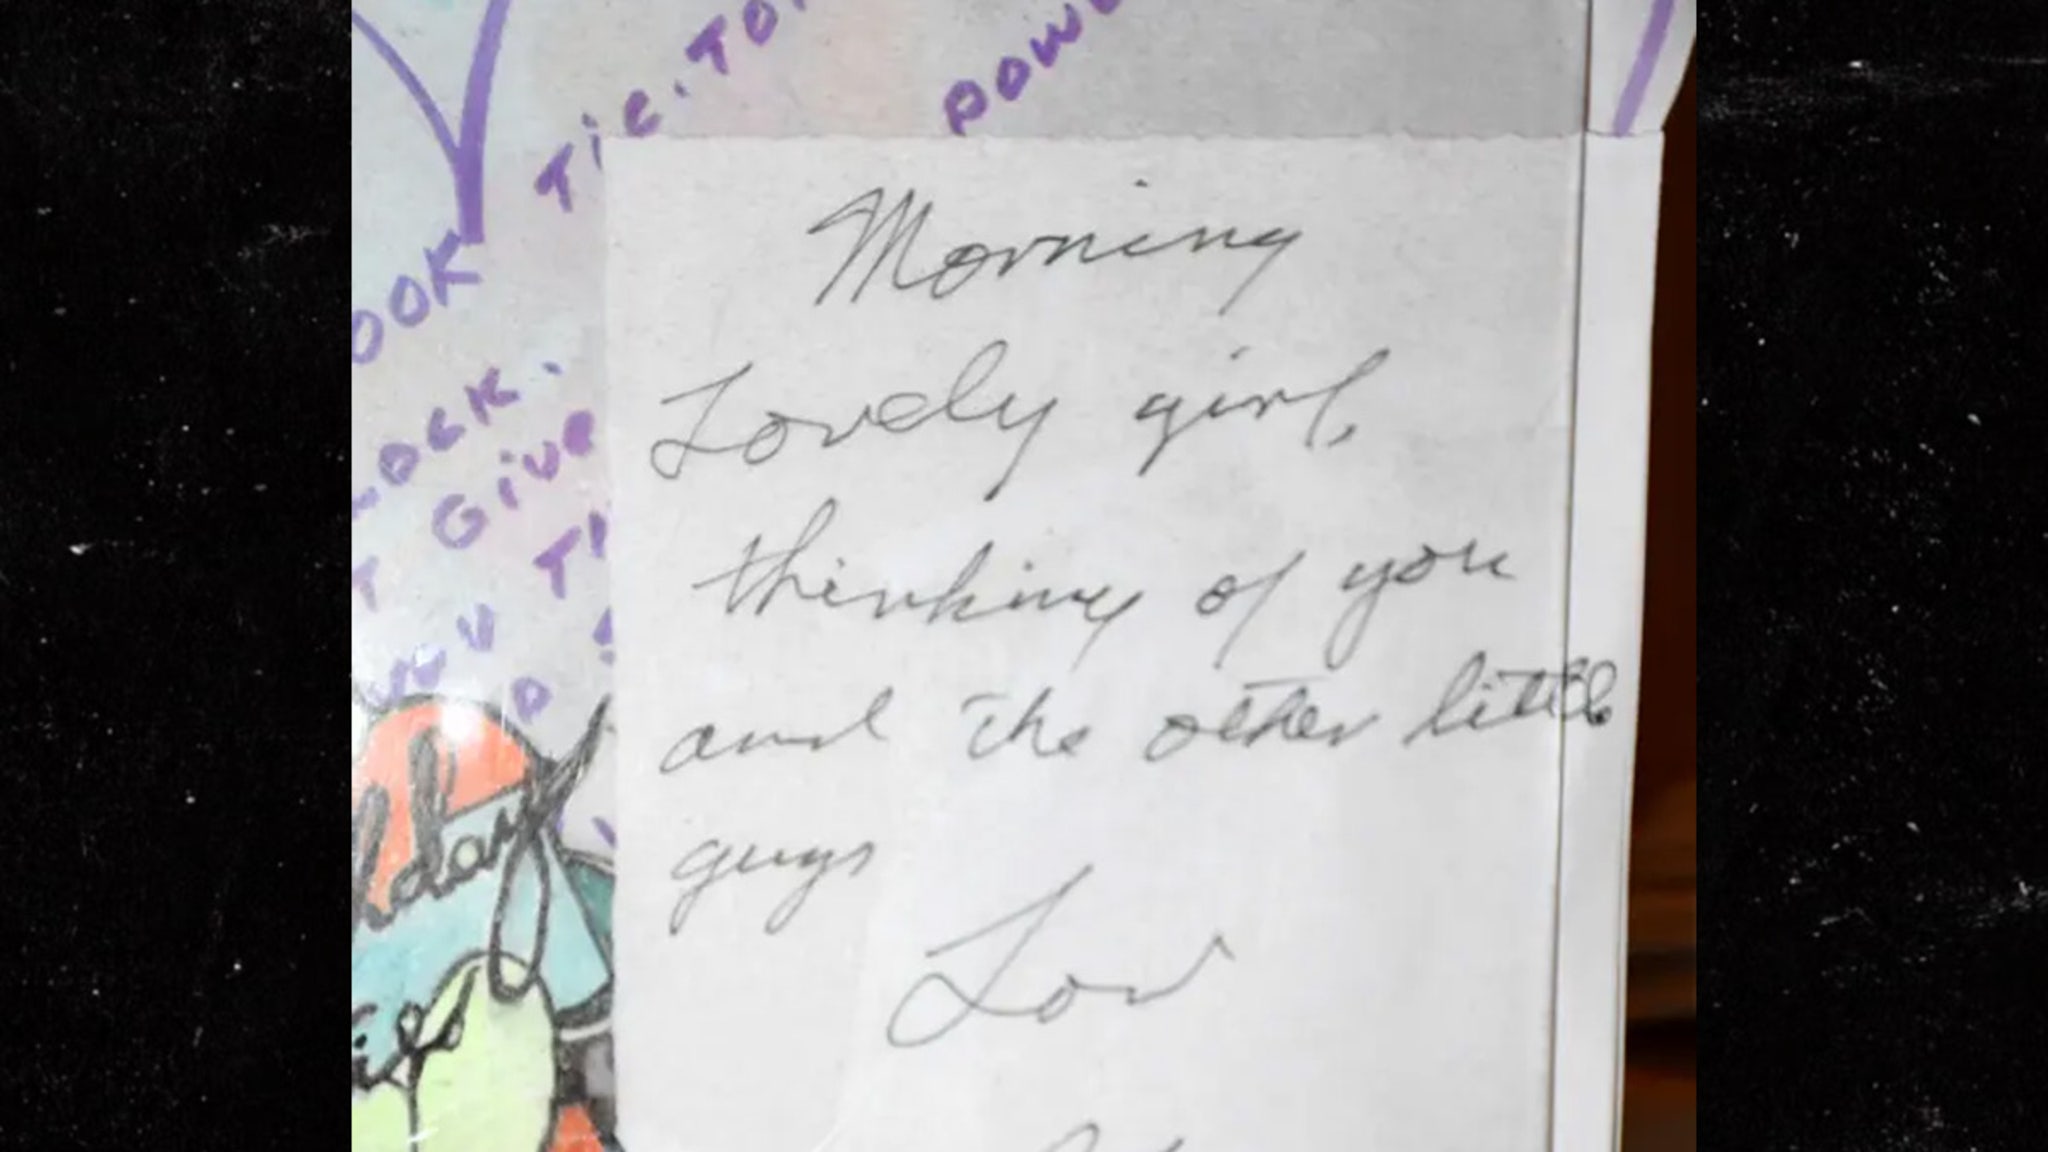 TIC.TO
POW
OOK
OCK.
Give
Morning
Lovely girl,
thinking of you
and the other little
guys
Lov